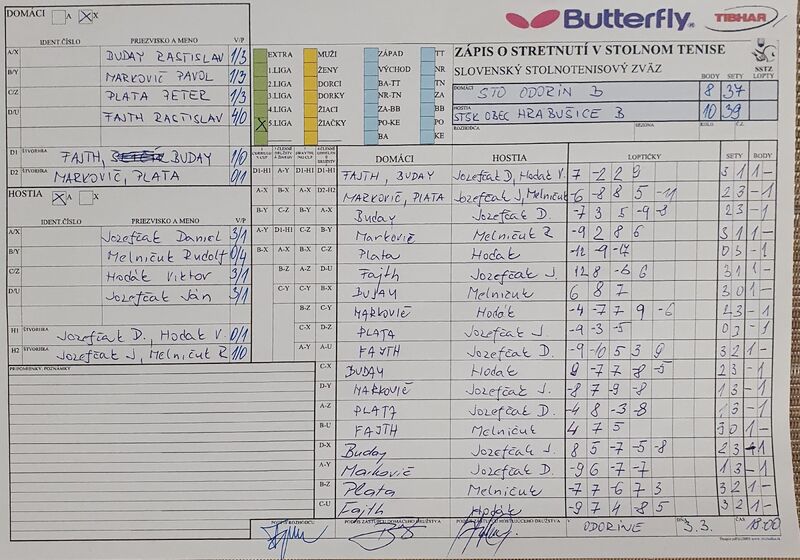 DOMÁCI A X
Butterfly. TIBHAR
IDENT.ČÍSLO PRIEZVISKO A MENO V/P
A/X BUDAY RASTISLAV 1/3
B/Y MARKOVIČ PAVOL 1/3
C/Z PLATA PETER 1/3
D/U FAJTH RASTISLAV 4/0
D1 ŠTVORHRA FAJTH, BUDAY 1/0
D2 ŠTVORHRA MARKOVIČ, PLATA 0/1
HOSTIA A X
IDENT.ČÍSLO PRIEZVISKO A MENO V/P
A/X Jozefčák Daniel 3/1
B/Y Melničuk Rudolf 0/4
C/Z Hodák Viktor 3/1
D/U Jozefčák Ján 3/1
H1 ŠTVORHRA Jozefčák D., Hodák V. 0/1
H2 ŠTVORHRA Jozefčák J., Melničuk R 1/0
PRIPOMIENKY, POZNÁMKY
EXTRA MUŽI ZÁPAD TT
1.LIGA ŽENY VÝCHOD NR
2.LIGA DORCI BA-TT TN
3.LIGA DORKY NR-TN ZA
4.LIGA ŽIACI ZA-BB BB
5.LIGA ŽIAČKY PO-KE PO
BA KE
ZÁPIS O STRETNUTÍ V STOLNOM TENISE
SLOVENSKÝ STOLNOTENISOVÝ ZVÄZ
SSTZ
BODY SETY LOPTY
DOMÁCI STO ODORÍN B 8 37
HOSTIA STSK OBEC HRABUŠICE B 10 39
ROZHODCA SEZONA KOLO Č.Z.
DOMÁCI HOSTIA LOPTIČKY SETY BODY
D1-H1 A-Y D1-H1 D1-H1 FAJTH, BUDAY Jozefčák D, Hodák V. 7 -2 2 9 3 1 1 -
A-X B-X A-X D2-H2 MARKOVIČ, PLATA Jozefčák J, Melničuk -6 -8 8 5 -11 2 3 - 1
B-Y C-Z B-Y A-X Buday Jozefčák D. -7 3 5 -9 -8 2 3 - 1
A-Y D1-H1 C-Z B-Y Markovič Melničuk R -9 2 8 6 3 1 1 -
B-X A-X A-X C-Z Plata Hodák -12 -9 -17 0 3 - 1
B-Z A-Z D-U Fajth Jozefčák J. 12 8 -6 6 3 1 1 -
C-Y C-Y B-X BUDAY Melničuk 6 8 7 3 0 1 -
B-Z C-Y MARKOVIČ Hodák -4 -7 7 9 -6 2 3 - 1
C-X D-Z PLATA Jozefčák J. -9 -3 -5 0 3 - 1
A-Y A-U FAJTH Jozefčák D. -9 -10 5 3 9 3 2 1 -
C-X BUDAY Hodák 9 -7 7 -8 -5 2 3 - 1
D-Y MARKOVIČ Jozefčák J. -8 7 -9 -8 1 3 - 1
A-Z PLATA Jozefčák D. -4 8 -3 -8 1 3 - 1
B-U FAJTH Melničuk 4 7 5 3 0 1 -
D-X Buday Jozefčák J. 8 5 -7 -5 -8 2 3 - 1
A-Y Markovič Jozefčák D. -9 6 -7 -7 1 3 - 1
B-Z Plata Melničuk -7 7 -6 7 3 3 2 1 -
C-U Fajth Hodák -9 7 4 -8 5 3 2 1 -
PODPIS ROZHODCU PODPIS ZÁSTUPCU DOMÁCEHO DRUŽSTVA PODPIS ZÁSTUPCU HOSŤUJÚCEHO DRUŽSTVA V ODORÍNE DŇA 3.3. 18:00